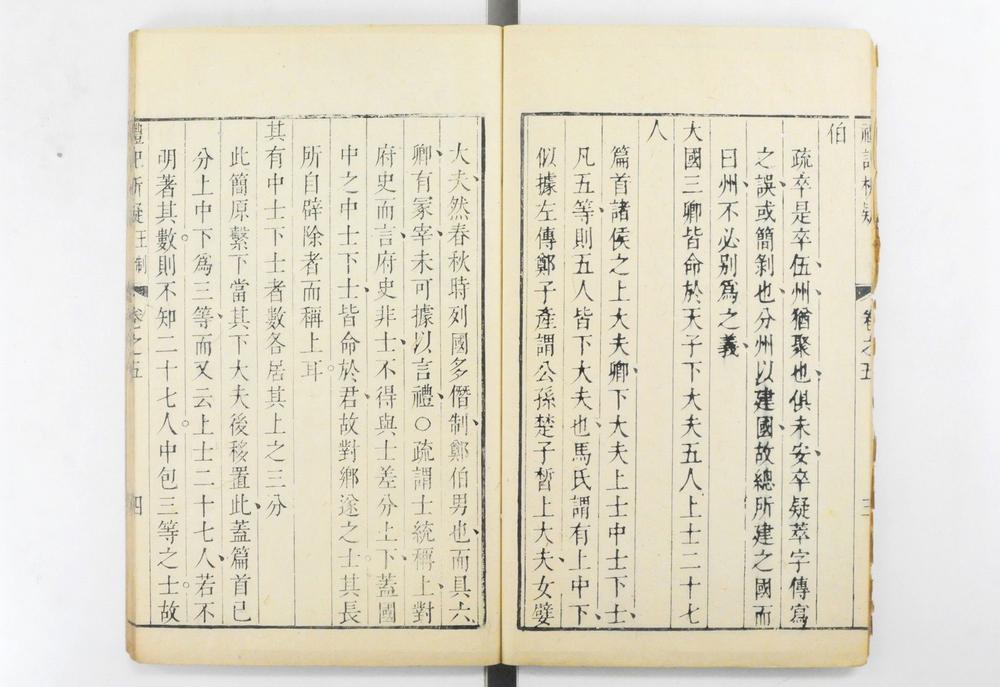 伯
疏卒是卒伍州猶聚也俱未安卒疑萃字傳寫
之誤或簡剝也分州以建國故總所建之國而
曰州不必別爲之義
大國三卿皆命於天子下大夫五人上士二十七
人
篇首諸侯之上大夫卿下大夫上士中士下士
凡五等則五人皆下大夫也馬氏謂有上中下
似據左傳鄭子產謂公孫楚子晳上大夫女嬖
大夫然春秋時列國多僭制鄭伯男也而具六
卿有冢宰未可據以言禮○疏謂士統稱上對
府史而言府史非士不得與士差分上下蓋國
中之中士下士皆命於君故對鄉遂之士其長
所自辟除者而稱上耳
其有中士下士者數各居其上之三分
此簡原繫下當其下大夫後移置此蓋篇首已
分上中下爲三等而又云上士二十七人若不
明著其數則不知二十七人中包三等之士故
禮記析疑 王制 卷之五 四